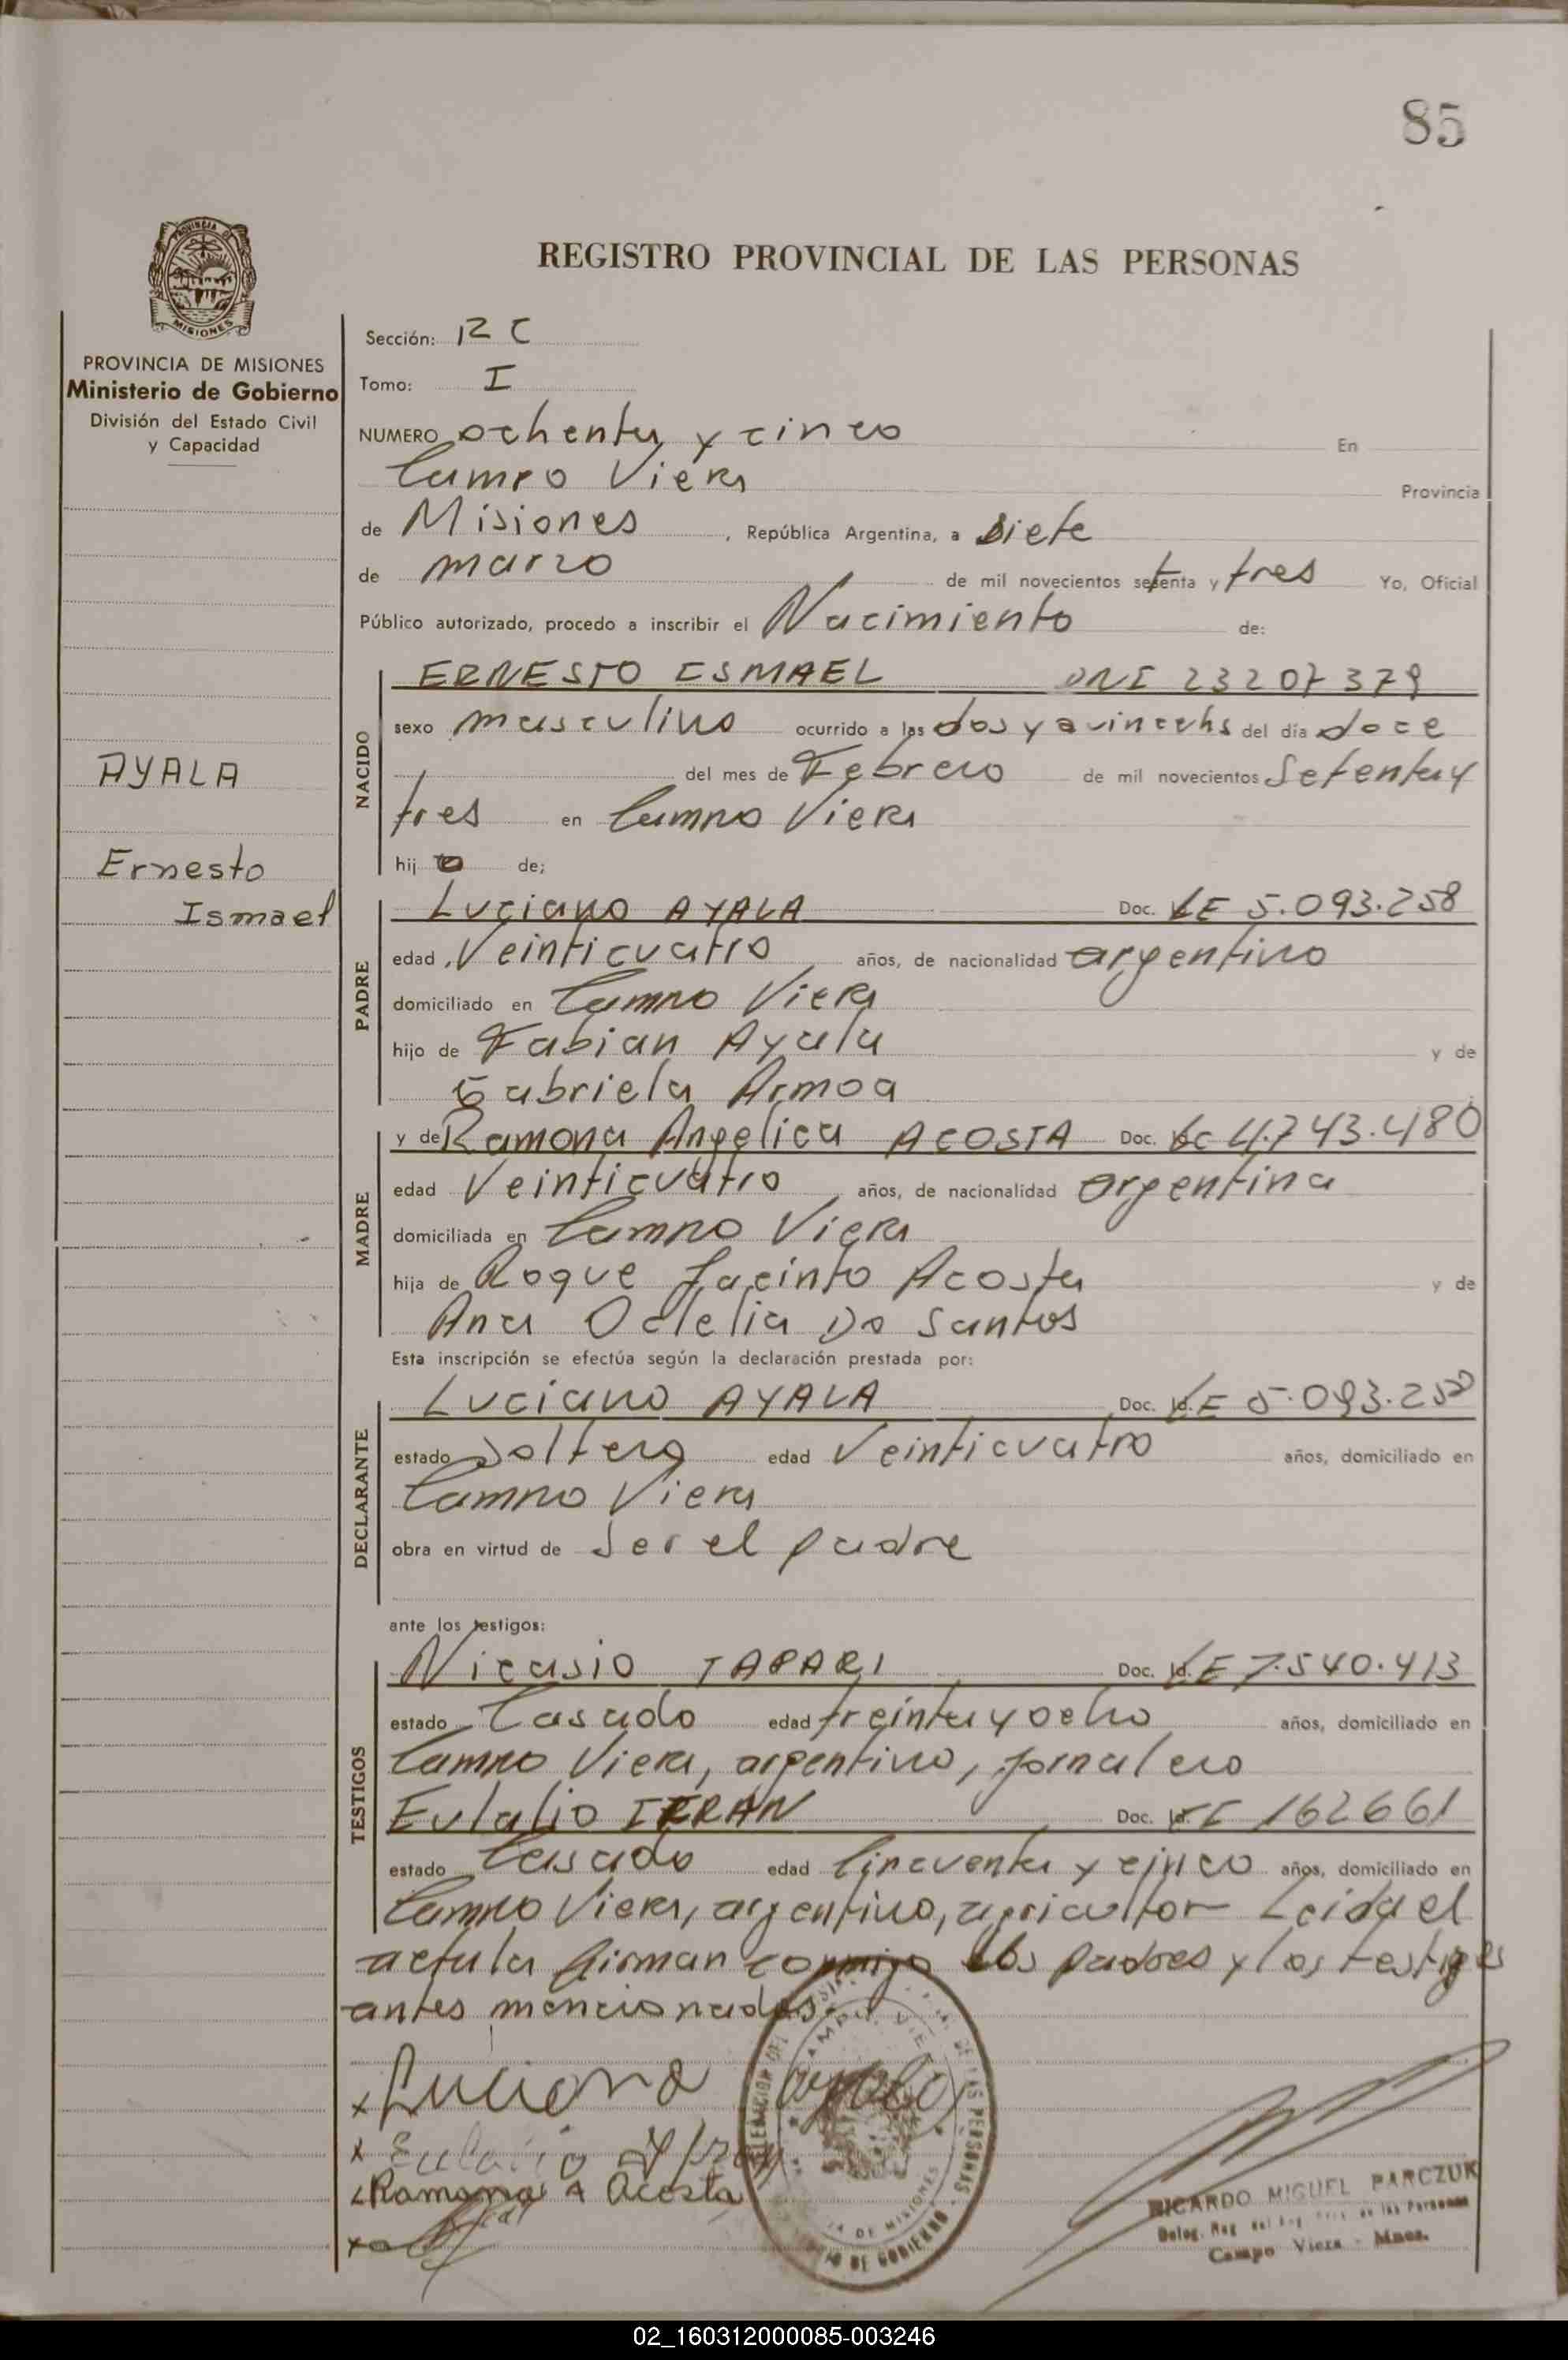 85
REGISTRO PROVINCIAL DE LAS PERSONAS
PROVINCIA DE MISIONES
Ministerio de Gobierno
División del Estado Civil
y Capacidad
AYALA
Ernesto
Ismael
Sección: 12 C
Tomo: I
NUMERO ochenta y cinco En
Campo Viera Provincia
de Misiones, República Argentina, a siete
de marzo de mil novecientos setenta y tres Yo, Oficial
Público autorizado, procedo a inscribir el Nacimiento de:
NACIDO
ERNESTO ISMAEL DNI 23207379
sexo masculino ocurrido a las dos y quince hs del día doce
del mes de Febrero de mil novecientos Setenta y
tres en Campo Viera
hijo de;
PADRE
Luciano AYALA Doc. LE 5.093.258
edad Veinticuatro años, de nacionalidad argentino
domiciliado en Campo Viera
hijo de Fabian Ayala y de
Gabriela Armoa
MADRE
y de Ramona Angelica ACOSTA Doc. LC 4.743.480
edad Veinticuatro años, de nacionalidad argentina
domiciliada en Campo Viera
hija de Roque Jacinto Acosta y de
Ana Odelia Do Santos
Esta inscripción se efectúa según la declaración prestada por:
DECLARANTE
Luciano AYALA Doc. LE 5.093.258
estado Soltero edad Veinticuatro años, domiciliado en
Campo Viera
obra en virtud de Ser el padre
ante los testigos:
TESTIGOS
Nicasio TAPARI Doc. LE 7.540.413
estado Casado edad treinta y ocho años, domiciliado en
Campo Viera, argentino, jornalero
Eulalio Doc. 162661
estado Casado edad Cincuenta y cinco años, domiciliado en
Campo Viera, argentino, agricultor Leida el
acta la firman conmigo los padres y los testigos
antes mencionados.
x Luciano Ayala
x Eulalio
x Ramona A Acosta
RICARDO MIGUEL PARCZUK
Campo Viera - Mnes.
02_160312000085-003246